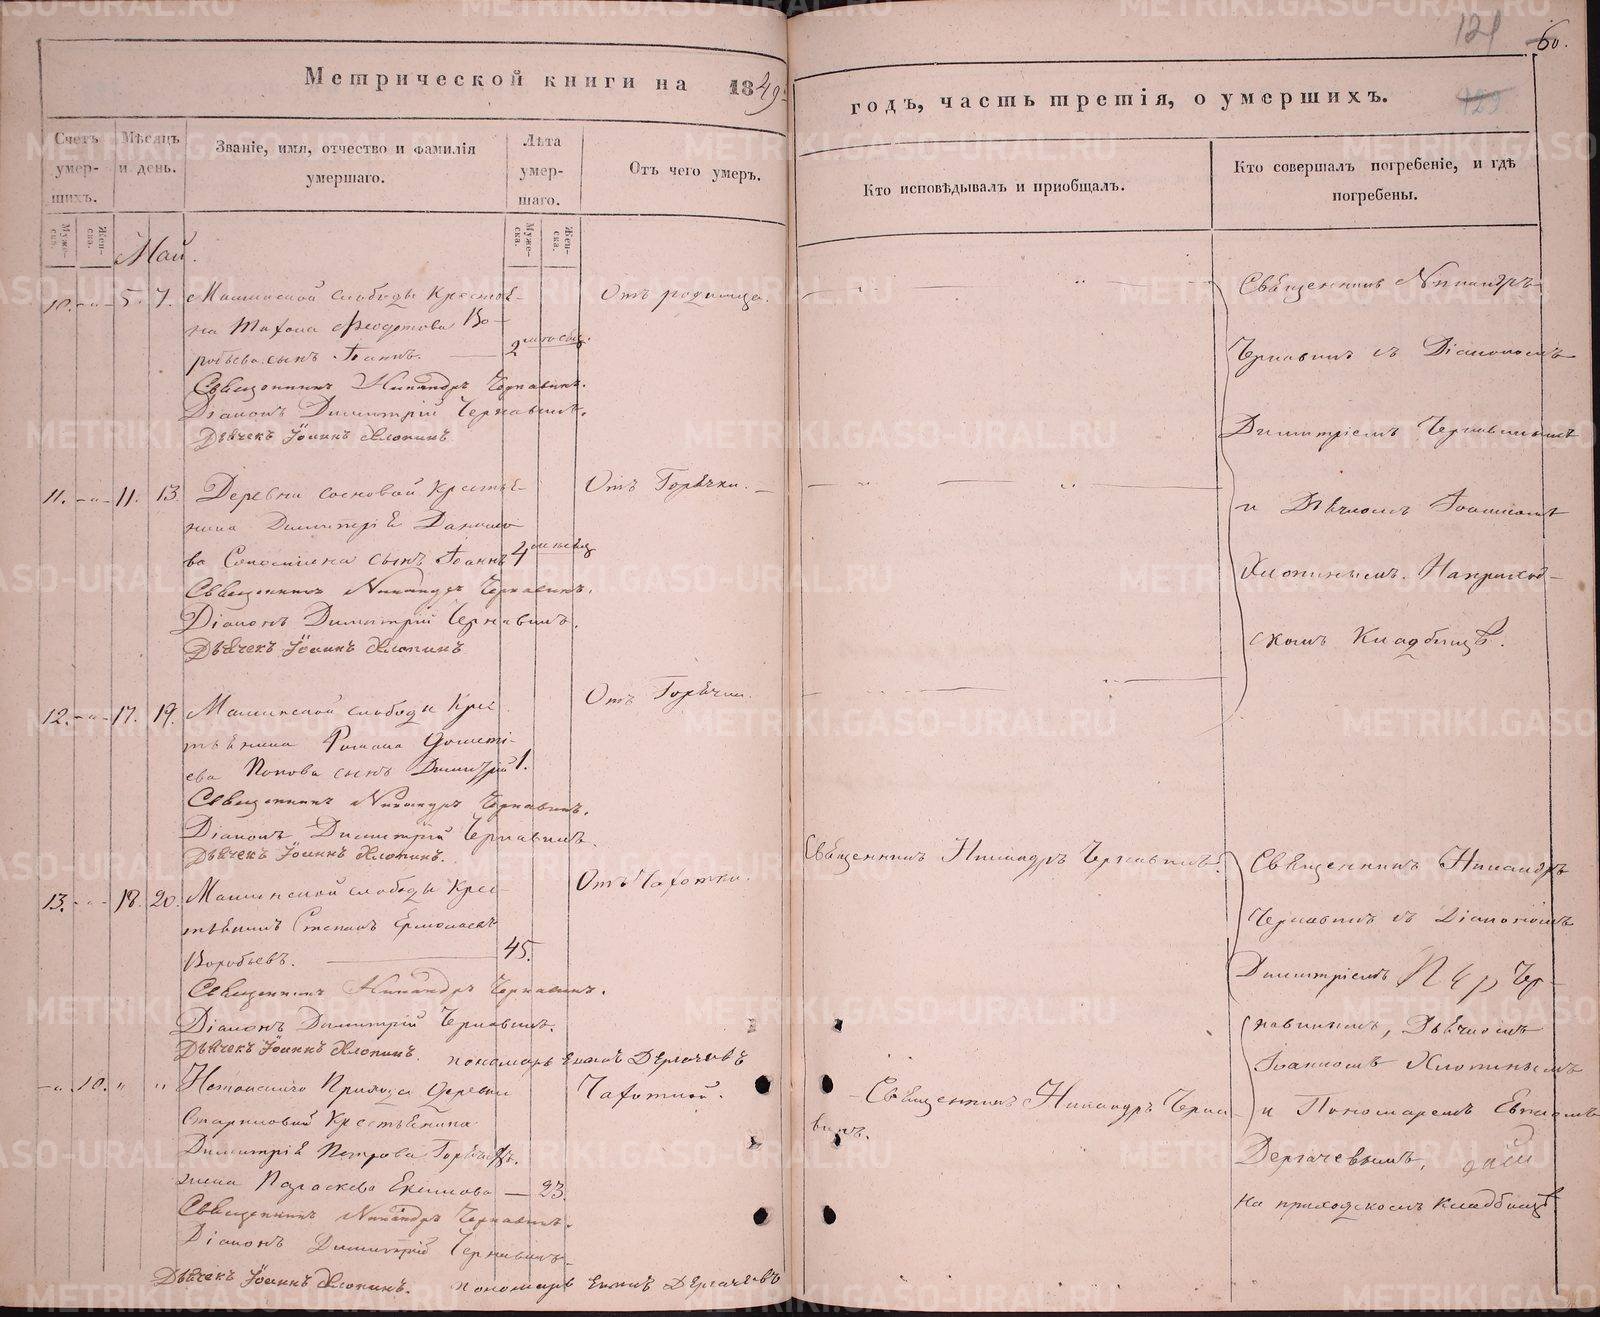 121
60.
Метрической книги на 1849
годъ, часть третія, о умершихъ.
129
Счетъ умер-шихъ.
Мѣсяцъ и день.
Званіе, имя, отчество и фамилія умершаго.
Лѣта умер-шаго.
Отъ чего умеръ.
Кто исповѣдывалъ и пріобщалъ.
Кто совершалъ погребеніе, и гдѣ погребены.
Муже-ска.
Жен-ска.
Муже-ска.
Жен-ска.
Май.
10. -"- 5. 7.
слободы Крестья-
на Өеодотова Во-
робьева сынъ Іоаннъ.
2
Отъ родимца.
Священникъ Никандръ Чернавинъ.
Діаконъ Димитрій Чернавинъ.
Дьячекъ Іоаннъ Хлопинъ
11. -"- 11. 13.
Деревни Сосновой Крестья-
нина Димитрія Данило-
ва сынъ Іоаннъ
4 мѣсяц
Отъ Горячки.
Священникъ Никандръ Чернавинъ.
Діаконъ Димитрій Чернавинъ.
Дьячекъ Іоаннъ Хлопинъ
12. -"- 17. 19.
слободы Крес-
тьянина Романа
ева Попова сынъ Димитрій
1.
Отъ Горячки.
Священникъ Никандръ Чернавинъ.
Діаконъ Димитрій Чернавинъ.
Дьячекъ Іоаннъ Хлопинъ.
13. -"- 18. 20.
слободы Крес-
тьянинъ Степанъ Ермолаевъ
Воробьевъ.
45.
Отъ Чахотки.
Священникъ Никандръ Чернавинъ.
Діаконъ Димитрій Чернавинъ.
Дьячекъ Іоаннъ Хлопинъ. пономарь Дергачевъ
-"- 10. " "
Прихода деревни
Крестьянина
Димитрія Петрова
жена Параскева Екимова
23.
Чахоткой.
Священникъ Никандръ Чернавинъ.
Діаконъ Димитрій Чернавинъ
Дьячекъ Іоаннъ Хлопинъ. пономарь Дергачевъ
Священникъ Никандръ Чернавинъ.
Священникъ Никандръ Черна-
винъ.
Священникъ Никандръ
Чернавинъ съ Діакономъ
Димитріемъ Чернавинымъ
и Дьячкомъ Іоанномъ
Хлопинымъ. На приход-
скомъ Кладбищѣ.
Священникъ Никандръ
Чернавинъ съ Діакономъ
Димитріемъ Чер-
навинымъ, Дьячкомъ
Іоанномъ Хлопинымъ
и Пономаремъ
Дергачевымъ,
на приходскомъ Кладбищѣ
METRIKI.GASO-URAL.RU